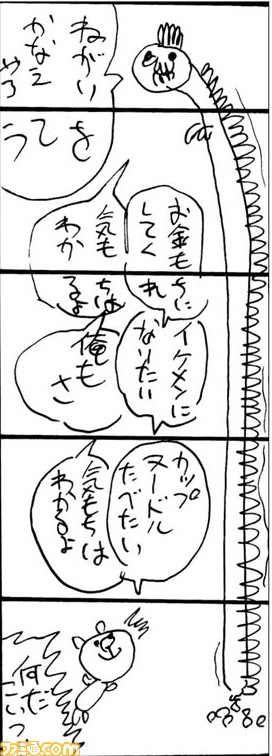 ねがい
かなえ
てやろう
お金も
ちに
してくれ
気も
わか
ちは
るよ
イケメンに
なりたい
俺もさ
カップ
ヌードル
たべたい
気もちは
わかるよ
何だ
こいつ
ファミ通.com